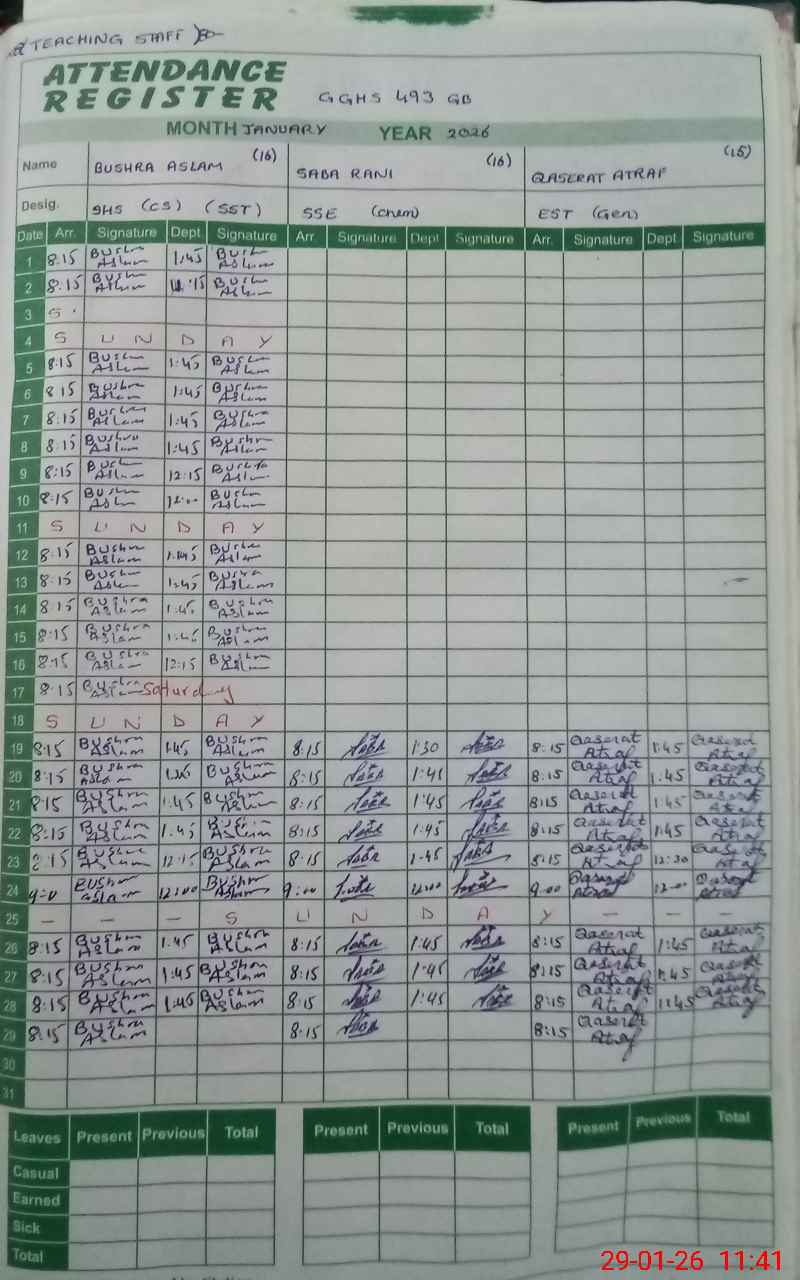 (TEACHING STAFF)
ATTENDANCE
REGISTER GGHS 493 GB
MONTH JANUARY YEAR 2026
Name BUSHRA ASLAM (16) SABA RANI (16) QASERAT ATRAF (15)
Desig. SHS (CS) (SST) SSE (Chem) EST (Gen)
Date Arr. Signature Dept Signature Arr. Signature Dept Signature Arr. Signature Dept. Signature
1 8:15 Bushra Aslam 1:45 Bushra Aslam
2 8:15 Bushra Aslam Bushra Aslam
3 S.
4 S U N D A Y
5 8:15 Bushra Aslam 1:45 Bushra Aslam
6 8:15 Bushra Aslam 1:45 Bushra Aslam
7 8:15 Bushra Aslam 1:45 Bushra Aslam
8 8:15 Bushra Aslam 1:45 Bushra Aslam
9 8:15 Bushra Aslam 12:15 Bushra Aslam
10 8:15 Bushra Aslam 12:00 Bushra Aslam
11 S U N D A Y
12 8:15 Bushra Aslam 1:45 Bushra Aslam
13 8:15 Bushra Aslam 1:45 Bushra Aslam
14 8:15 Bushra Aslam 1:45 Bushra Aslam
15 8:15 Bushra Aslam 1:45 Bushra Aslam
16 8:15 Bushra Aslam 12:15 Bushra Aslam
17 8:15 Bushra Aslam Saturday
18 S U N D A Y
19 8:15 Bushra Aslam 1:45 Bushra Aslam 8:15 Saba 1:30 Saba 8:15 Qaserat Atraf 1:45 Qaserat Atraf
20 8:15 Bushra Aslam 1:45 Bushra Aslam 8:15 Saba 1:45 Saba 8:15 Qaserat Atraf 1:45 Qaserat Atraf
21 8:15 Bushra Aslam 1:45 Bushra Aslam 8:15 Saba 1:45 Saba 8:15 Qaserat Atraf 1:45 Qaserat Atraf
22 8:15 Bushra Aslam 1:45 Bushra Aslam 8:15 Saba 1:45 Saba 8:15 Qaserat Atraf 1:45 Qaserat Atraf
23 8:15 Bushra Aslam 12:15 Bushra Aslam 8:15 Saba 1:45 Saba 8:15 Qaserat Atraf 12:30 Qaserat Atraf
24 9:0 Bushra Aslam 12:00 Bushra Aslam 9:00 Saba 12:00 Saba 9:00 Qaserat Atraf 12:00 Qaserat Atraf
25 - - - S U N D A Y - - -
26 8:15 Bushra Aslam 1:45 Bushra Aslam 8:15 Saba 1:45 Saba 8:15 Qaserat Atraf 1:45 Qaserat Atraf
27 8:15 Bushra Aslam 1:45 Bushra Aslam 8:15 Saba 1:45 Saba 8:15 Qaserat Atraf 1:45 Qaserat Atraf
28 8:15 Bushra Aslam 1:45 Bushra Aslam 8:15 Saba 1:45 Saba 8:15 Qaserat Atraf 1:45 Qaserat Atraf
29 8:15 Bushra Aslam 8:15 Saba 8:15 Qaserat Atraf
30
31
Leaves Present Previous Total Present Previous Total Present Previous Total
Casual
Earned
Sick
Total
29-01-26 11:41